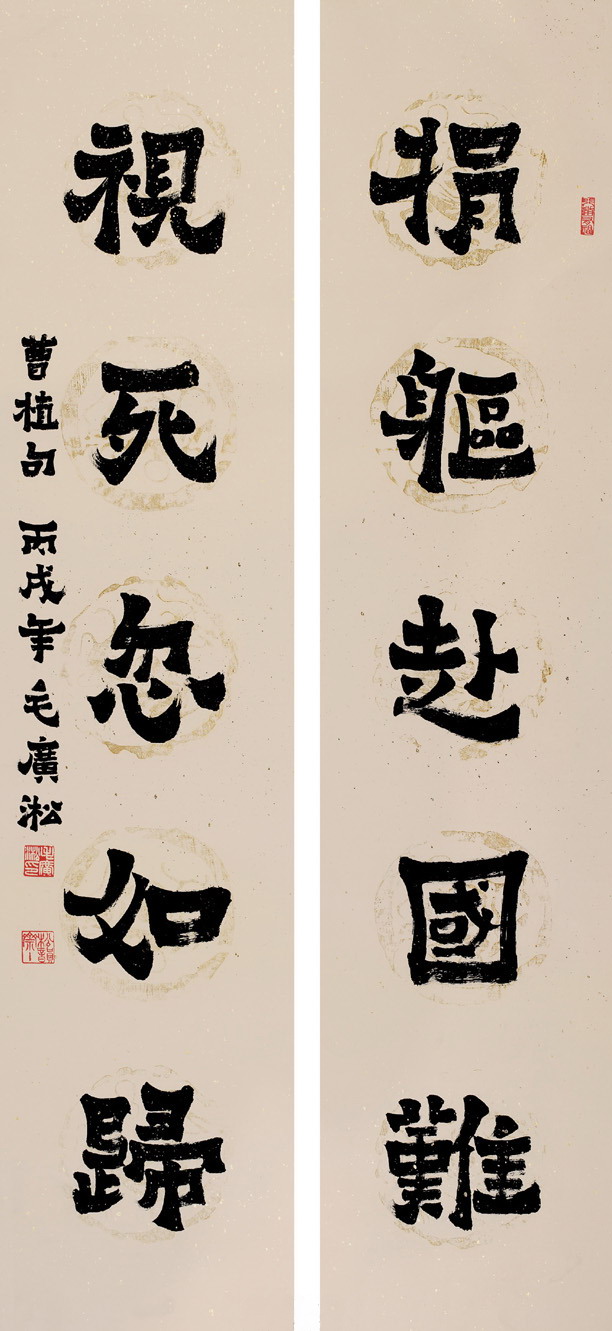 捐軀赴國難
視死忽如歸
曹植句 丙戌年毛廣淞